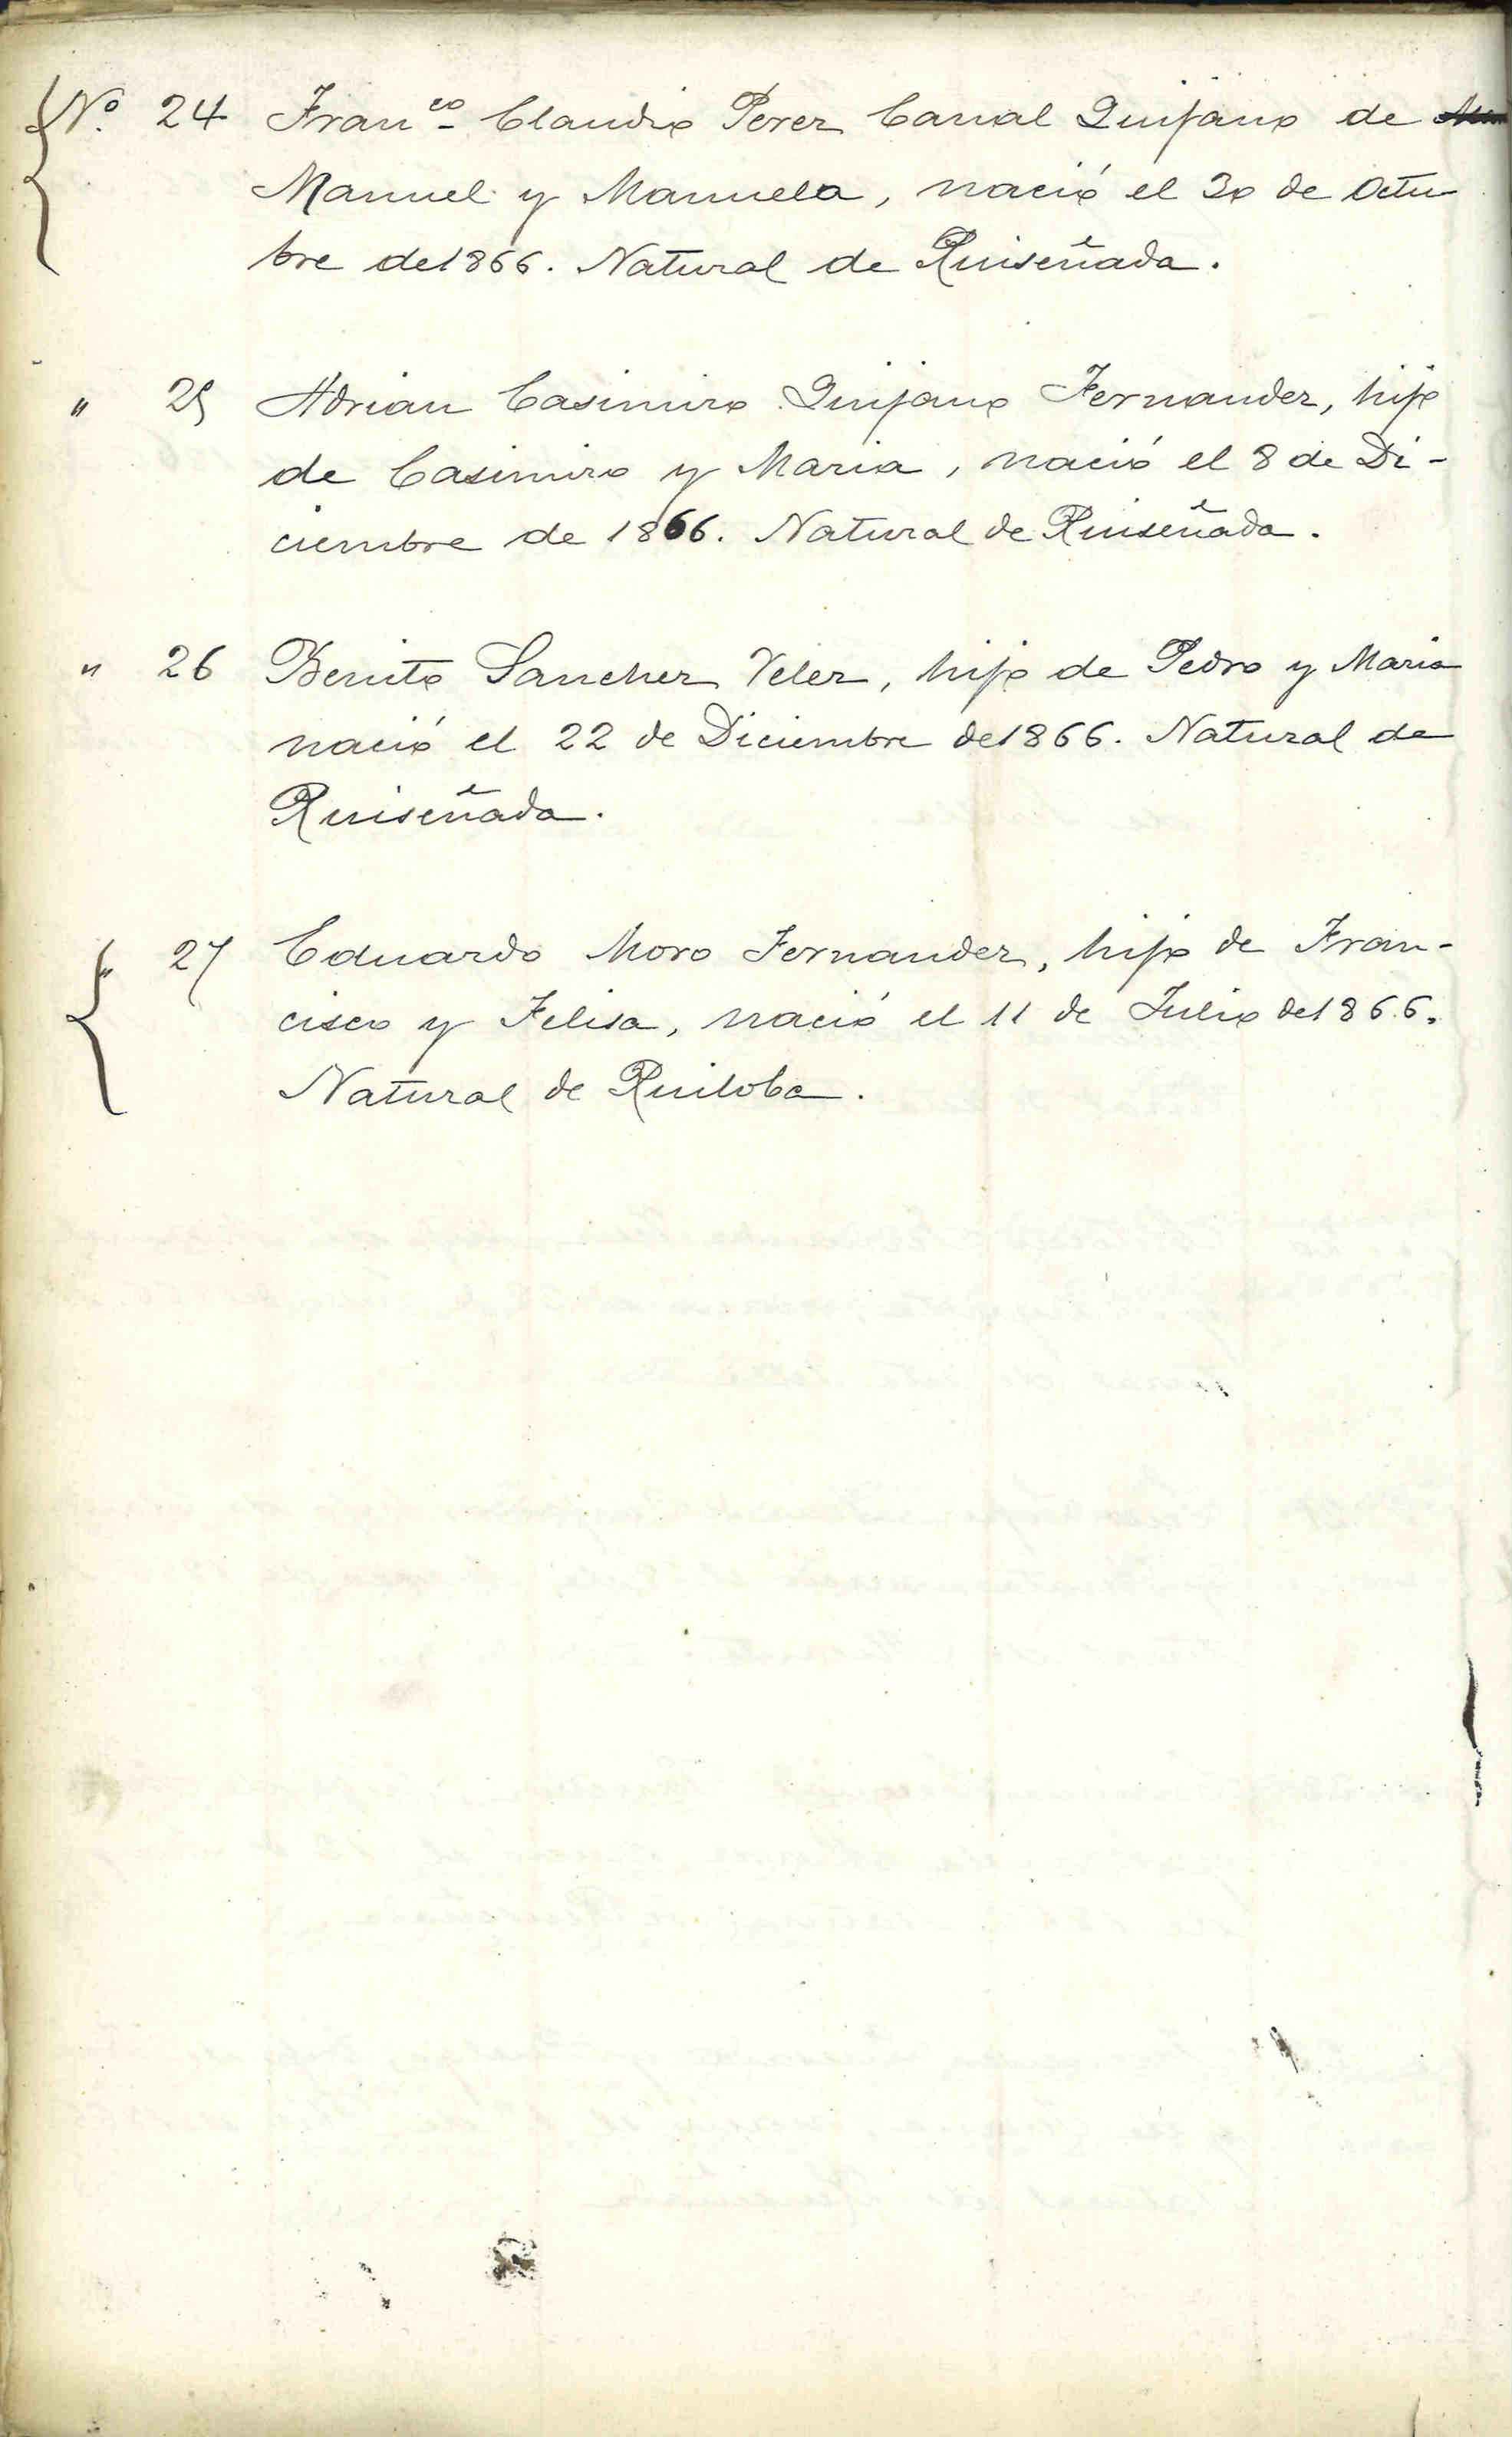 Nº. 24 Fran.co Claudio Perez Canal Quijano de
Manuel y Manuela, nació el 30 de Octu
bre de 1866. Natural de Ruiseñada.
" 25 Adrian Casimiro Quijano Fernandez, hijo
de Casimiro y Maria, nació el 8 de Di-
ciembre de 1866. Natural de Ruiseñada.
" 26 Benito Sanchez Velez, hijo de Pedro y Maria
nació el 22 de Diciembre de 1866. Natural de
Ruiseñada.
" 27 Eduardo Moro Fernandez, hijo de Fran-
cisco y Felisa, nació el 11 de Julio de 1866.
Natural de Ruiloba.